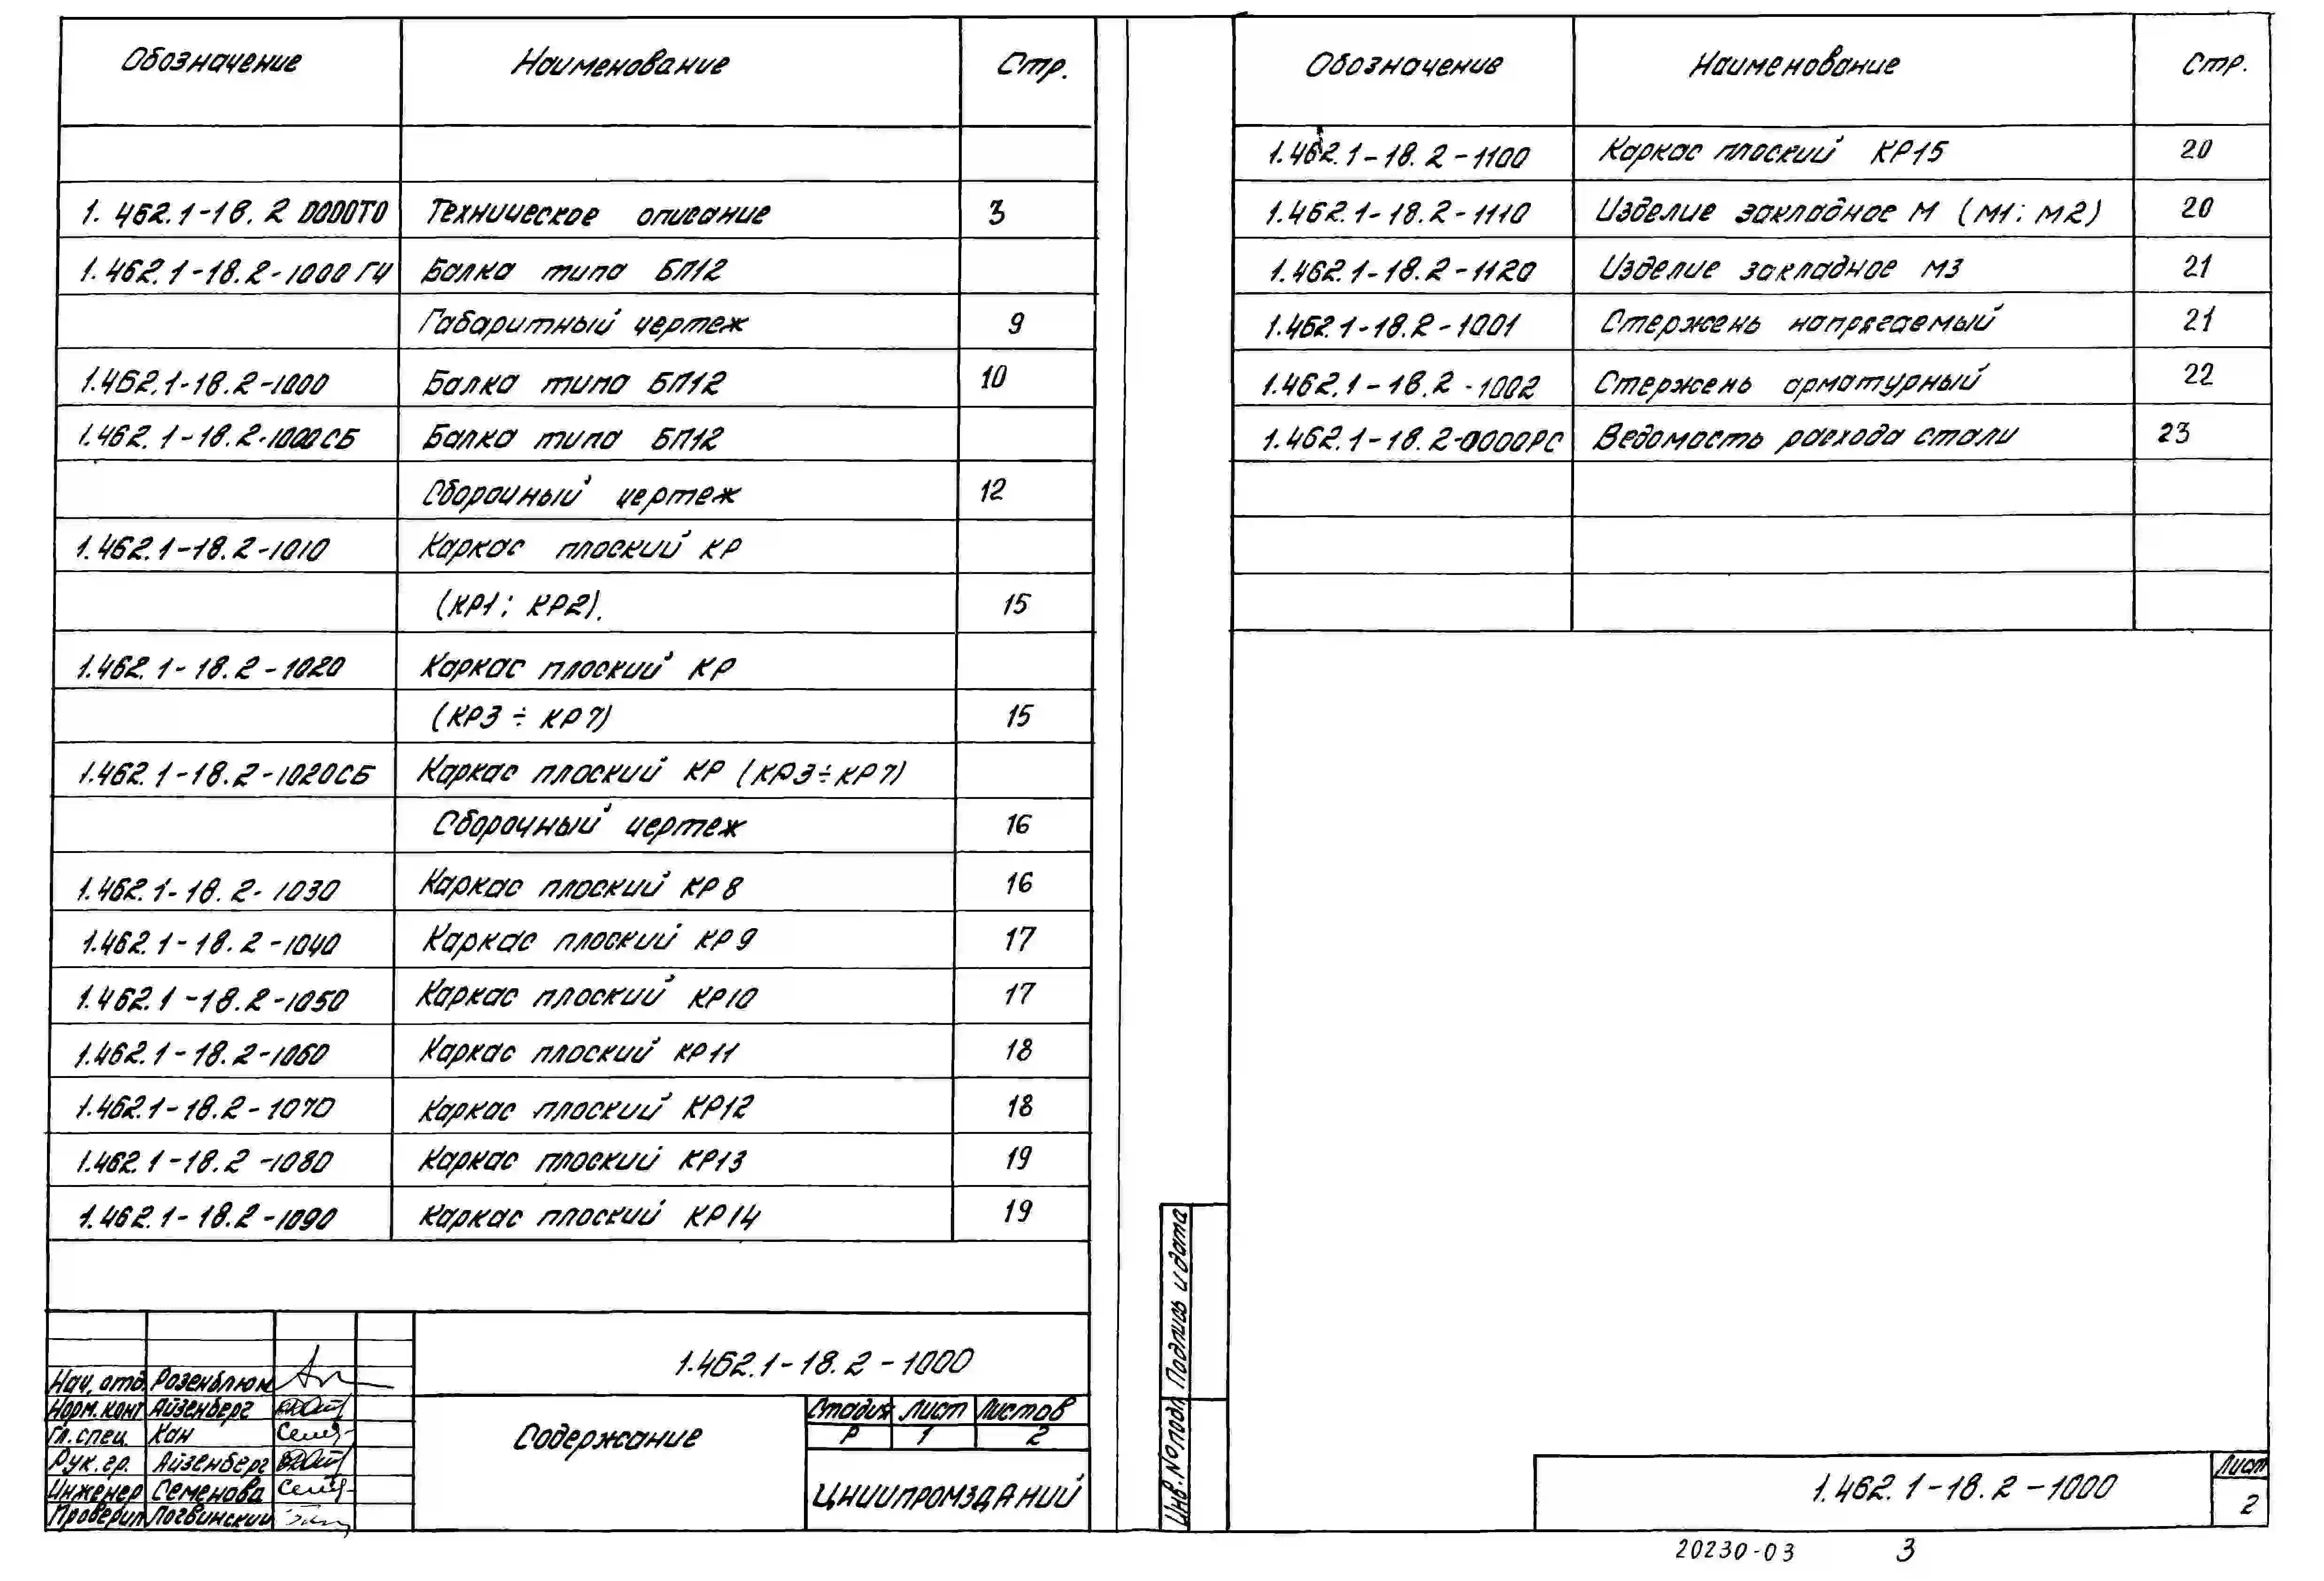 Обозначение Наименование Стр.
1.462.1-18.2 0000ТО Техническое описание 3
1.462.1-18.2-1000 ГЧ Балка типа БП12
Габаритный чертеж 9
1.462.1-18.2-1000 Балка типа БП12 10
1.462.1-18.2-1000СБ Балка типа БП12
Сборочный чертеж 12
1.462.1-18.2-1010 Каркас плоский КР
(КР1; КР2). 15
1.462.1-18.2-1020 Каркас плоский КР
(КР3 ÷ КР7) 15
1.462.1-18.2-1020СБ Каркас плоский КР (КР3÷КР7)
Сборочный чертеж 16
1.462.1-18.2-1030 Каркас плоский КР8 16
1.462.1-18.2-1040 Каркас плоский КР9 17
1.462.1-18.2-1050 Каркас плоский КР10 17
1.462.1-18.2-1060 Каркас плоский КР11 18
1.462.1-18.2-1070 Каркас плоский КР12 18
1.462.1-18.2-1080 Каркас плоский КР13 19
1.462.1-18.2-1090 Каркас плоский КР14 19
Нач. отд. Розенблюм
Норм. конт Айзенберг
Гл. спец. Кан
Рук. гр. Айзенберг
Инженер Семенова
Проверил Логвинский
1.462.1-18.2-1000
Содержание
Стадия Лист Листов
Р 1 2
ЦНИИПРОМЗДАНИЙ
Обозначение Наименование Стр.
1.462.1-18.2-1100 Каркас плоский КР15 20
1.462.1-18.2-1110 Изделие закладное М (М1; М2) 20
1.462.1-18.2-1120 Изделие закладное М3 21
1.462.1-18.2-1001 Стержень напрягаемый 21
1.462.1-18.2-1002 Стержень арматурный 22
1.462.1-18.2-0000РС Ведомость расхода стали 23
Инв. № подл Подпись и дата
1.462.1-18.2-1000
Лист
2
20230-03 3